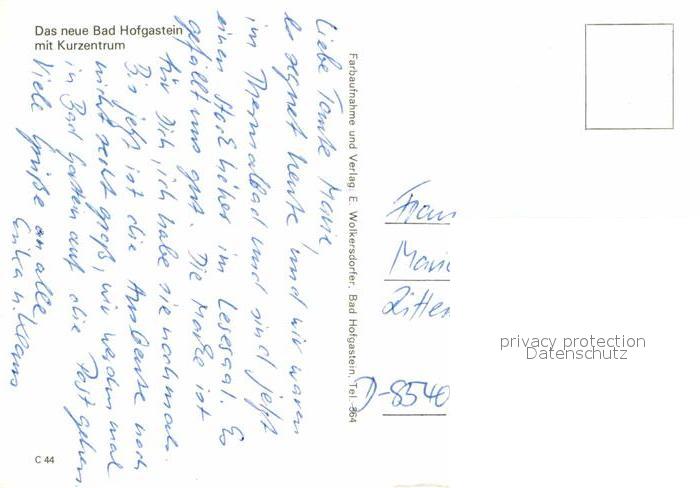 Das neue Bad Hofgastein
mit Kurzentrum
Liebe Tante Marie,
es regnet heute und wir waren
im Thermalbad und sind jetzt
einen Stock höher im Lesesaal. Es
gefällt uns gut. Die Marke ist
für Dich, ich habe sie nochmal.
Bis jetzt ist die Ausbeute noch
nicht sehr groß, wir werden mal
in Bad Gastein auf die Post gehen.
Viele Grüße an alle
Erika u. Klaus
C 44
Farbaufnahme und Verlag: E. Wolkersdorfer, Bad Hofgastein, Tel. 364
Frau
Marie
Ritter
D-8540
privacy protection
Datenschutz